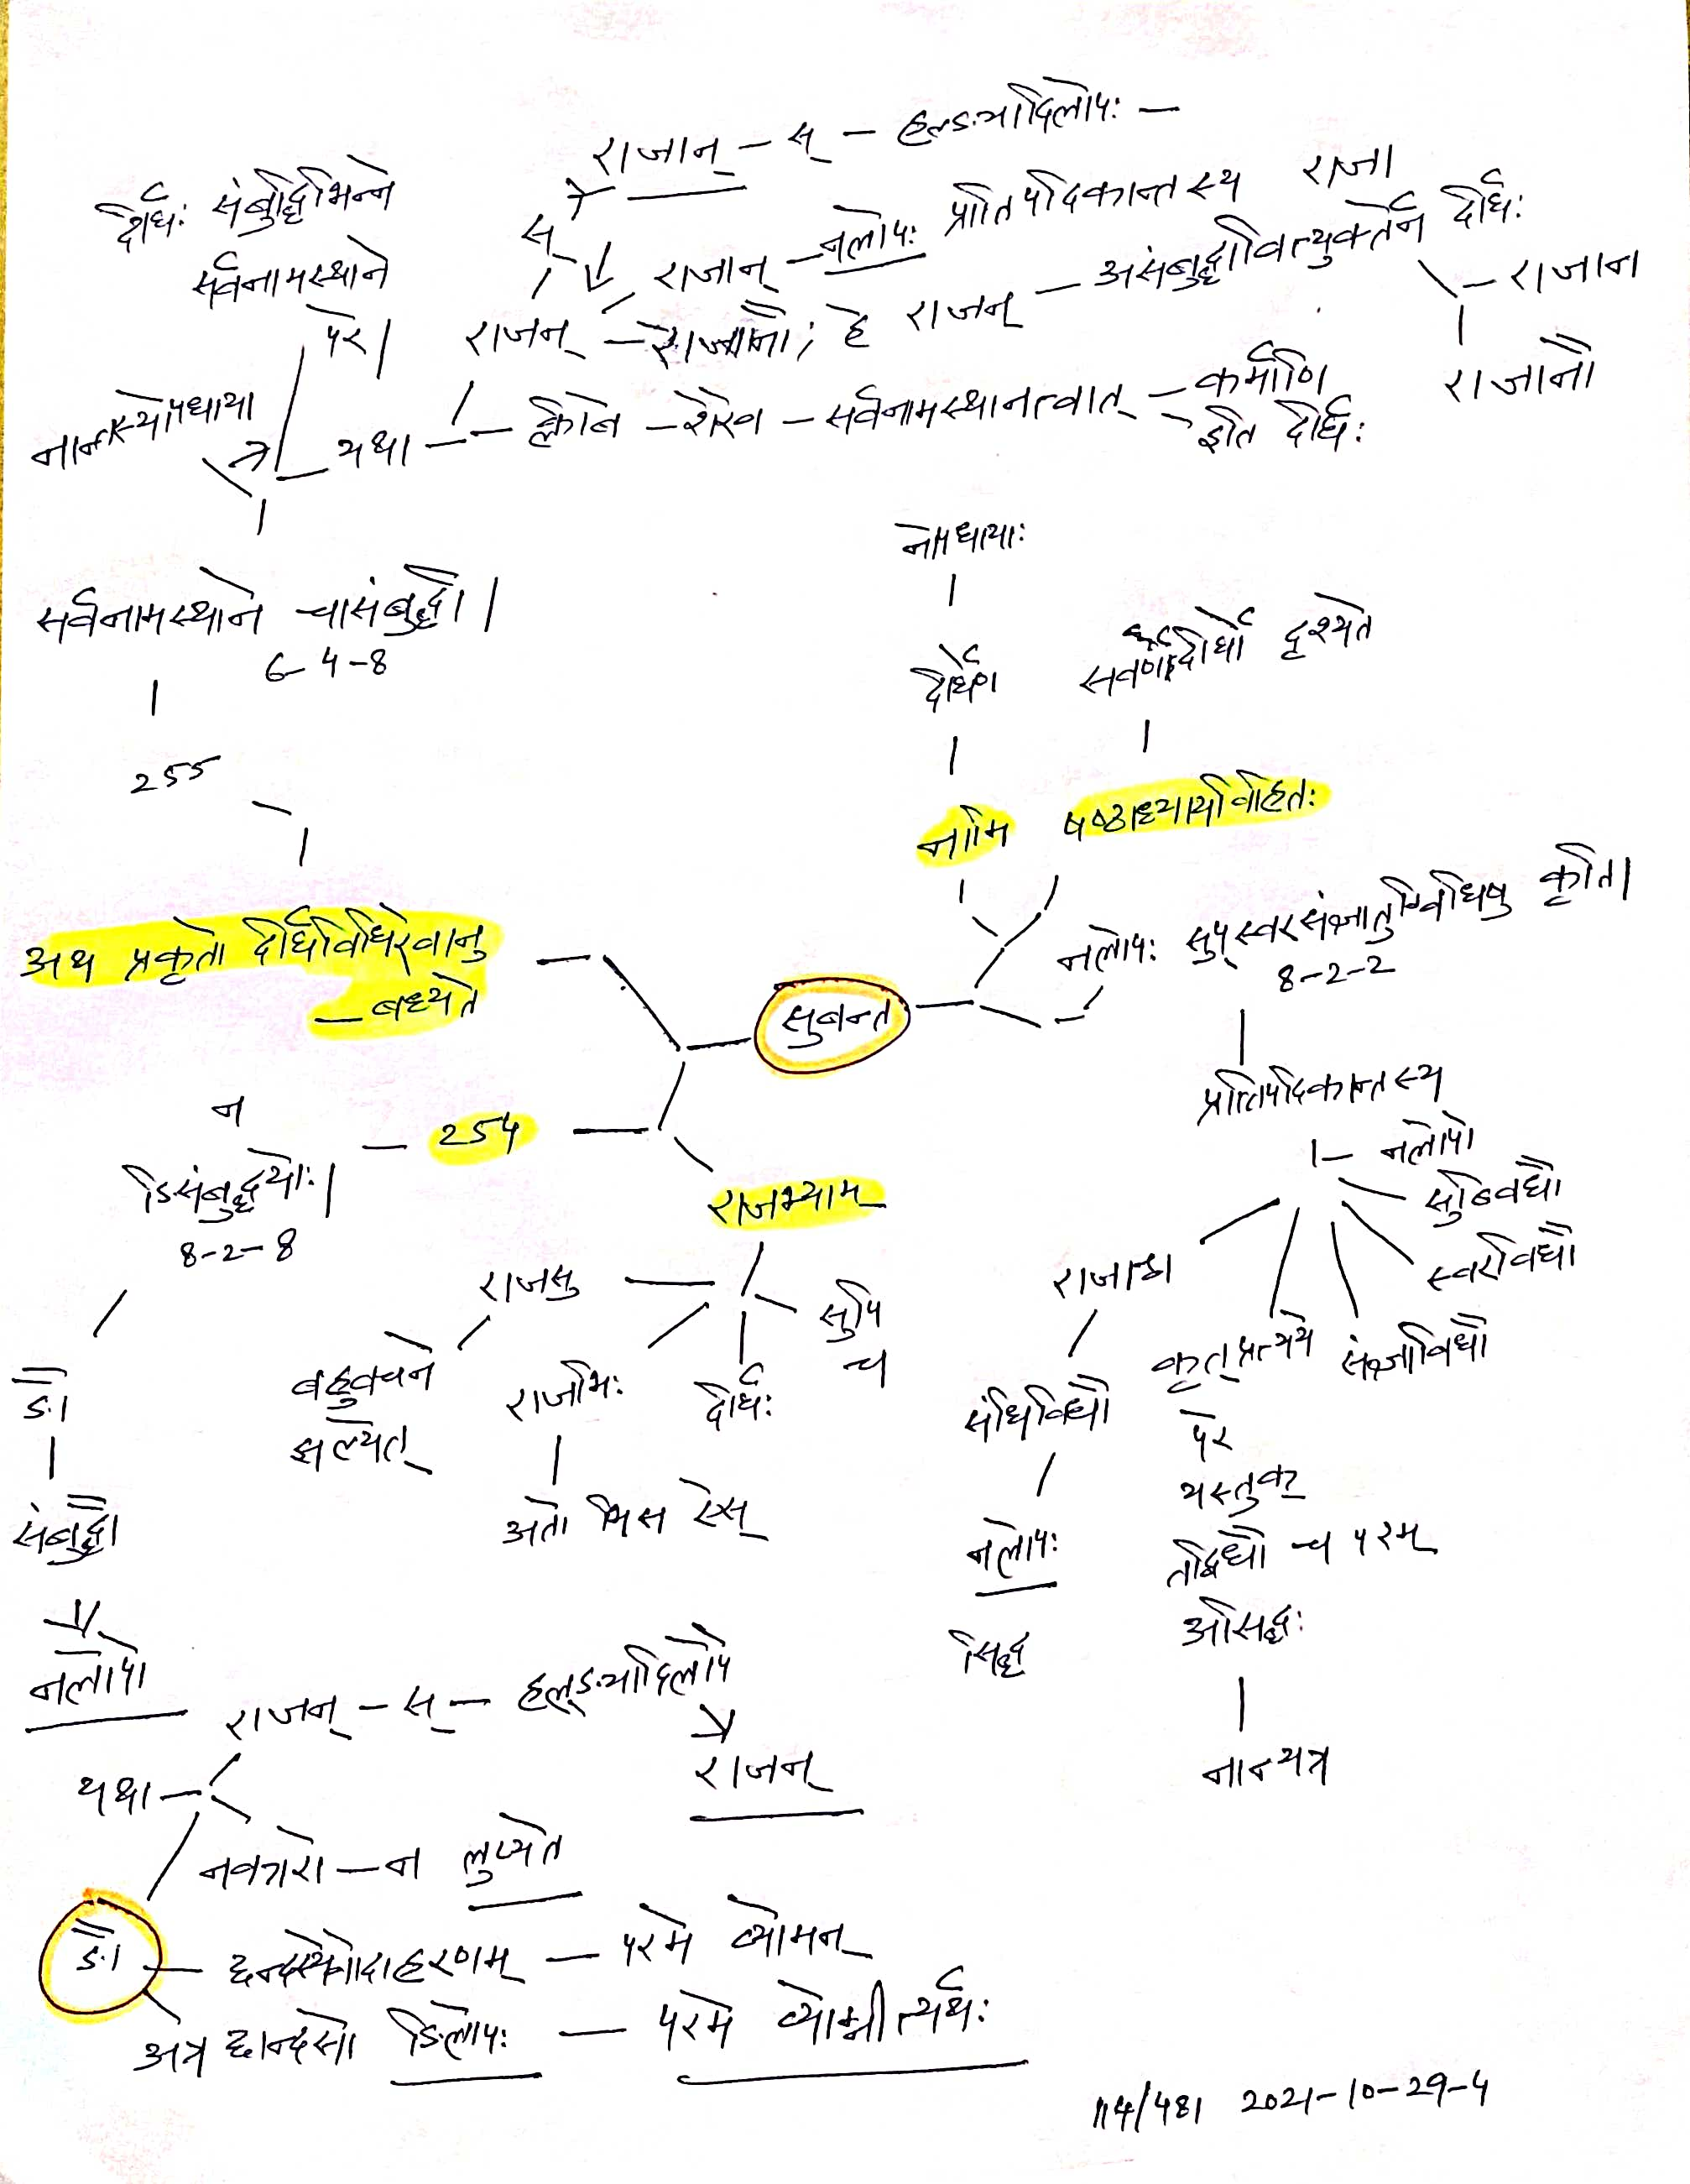 राजान् – स् – हल्ङ्यादिलोपः –
दीर्घः संबुद्धिभिन्ने
सर्वनामस्थाने
परे।
स्
राजान् – नलोपः प्रातिपदिकान्तस्य राजा
राजन् – राजानौ; हे राजन् – असंबुद्धावित्युक्तेर्न दीर्घः
– राजान
राजानौ
नान्तस्योपधाया
यथा – क्लीबे – शेरेव – सर्वनामस्थानत्वात् – कर्माणि
इति दीर्घः
सर्वनामस्थाने चासंबुद्धौ।
6-4-8
255
नोपधायाः
दीर्घेण
सवर्णदीर्घो दृश्यते
नामि षष्ठाध्यायविहितः
अथ प्रकृतो दीर्घविधिरेवानु
– बध्यते
सुबन्त
नलोपः सुप्स्वरसंज्ञातुग्विधिषु कृति।
8-2-2
प्रातिपदिकान्तस्य
– नलोपो
सुब्विधौ
स्वरविधौ
संज्ञाविधौ
कृत्प्रत्यये
परे
यस्तुक्
तद्विधौ च परम्
असिद्धः
नान्यत्र
राजाश्व
संधिविधौ
नलोपः
सिद्ध
न
– 254
ङिसंबुद्ध्योः।
8-2-8
राजभ्याम्
राजसु
बहुवचने
झल्येत्
राजभिः
अतो भिस ऐस्
दीर्घः
सुपि
च
ङौ
संबुद्धौ
नलोपो
राजन् – स् – हल्ङ्यादिलोपे
राजन्
यथा –
नकारो – न लुप्यते
ङौ – छन्दस्येवोदाहरणम् – परमे व्योमन्
अत्र छान्दसो ङिलोपः – परमे व्योम्नीत्यर्थः
114/481 2021-10-29-4